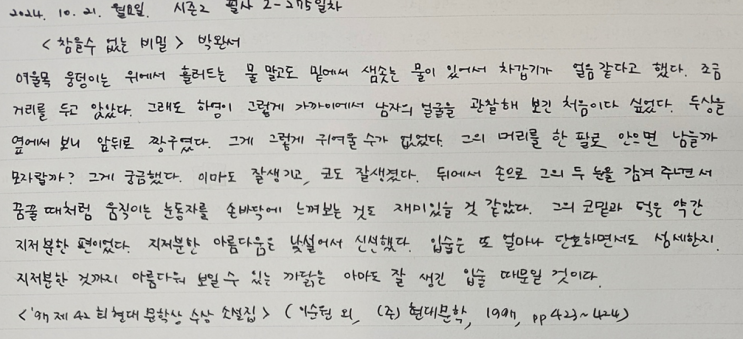 2024. 10. 21. 월요일. 시즌2 필사 2-275일차
<참을수 없는 비밀> 박완서
여울목 웅덩이는 위에서 흘러드는 물 말고도 밑에서 샘솟는 물이 있어서 차갑기가 얼음 같다고 했다. 조금
거리를 두고 앉았다. 그래도 하영이 그렇게 가까이에서 남자의 얼굴을 관찰해 보긴 처음이다 싶었다. 두상을
옆에서 보니 앞뒤로 짱구였다. 그게 그렇게 귀여울 수가 없었다. 그의 머리를 한 팔로 안으면 남을까
모자랄까? 그게 궁금했다. 이마도 잘생기고, 코도 잘생겼다. 뒤에서 손으로 그의 두 눈을 감겨 주면서
꿈꿀 때처럼 움직이는 눈동자를 손바닥에 느껴보는 것도 재미있을 것 같았다. 그의 코밑과 턱은 약간
지저분한 편이었다. 지저분한 아름다움은 낯설어서 신선했다. 입술은 또 얼마나 단호하면서도 섬세한지.
지저분한 것까지 아름다워 보일 수 있는 까닭은 아마도 잘 생긴 입술 때문일 것이다.
<'97 제 42회 현대 문학상 수상 소설집> (이순원 외, (주) 현대문학, 1997, pp 423~424)